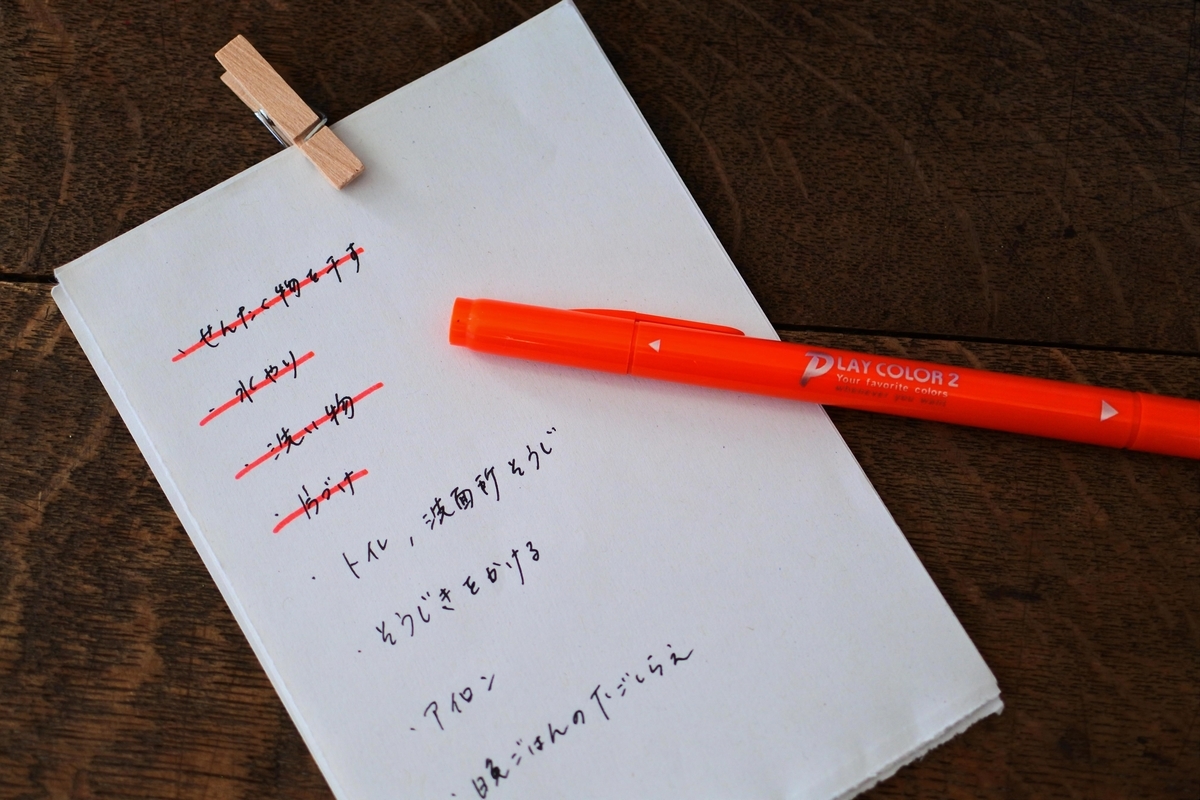 ・せんたく物を干す
・水やり
・洗い物
・片づけ
・トイレ，洗面所そうじ
・そうじきをかける
・アイロン
・晩ごはんの下ごしらえ
PLAY COLOR 2
Your favorite colors
whenever you want